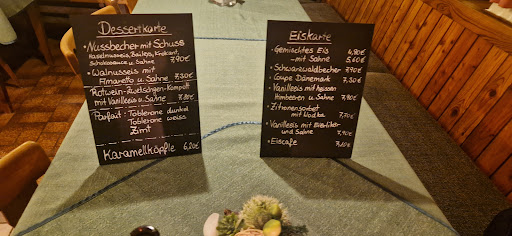 Dessertkarte
Nussbecher mit Schuss
Haselnusseis, Baileys, Krokant,
Schokosauce u. Sahne 7,90€
Walnusseis mit
Amaretto u. Sahne 7,30€
Rotwein-Zwetschgen-Kompott
mit Vanilleeis u. Sahne
Parfait - Toblerone dunkel
Toblerone weiss
Zimt
Karamellköpfle 6,20€
Eiskarte
Gemischtes Eis 4,80€
- mit Sahne 5,60€
Schwarzwaldbecher 7,90€
Coupe Dänemark 7,30€
Vanilleeis mit heissen
Himbeeren u. Sahne 7,90€
Zitronensorbet
mit Wodka 7,70€
Vanilleeis mit Eierlikör
und Sahne 7,90€
Eiscafe